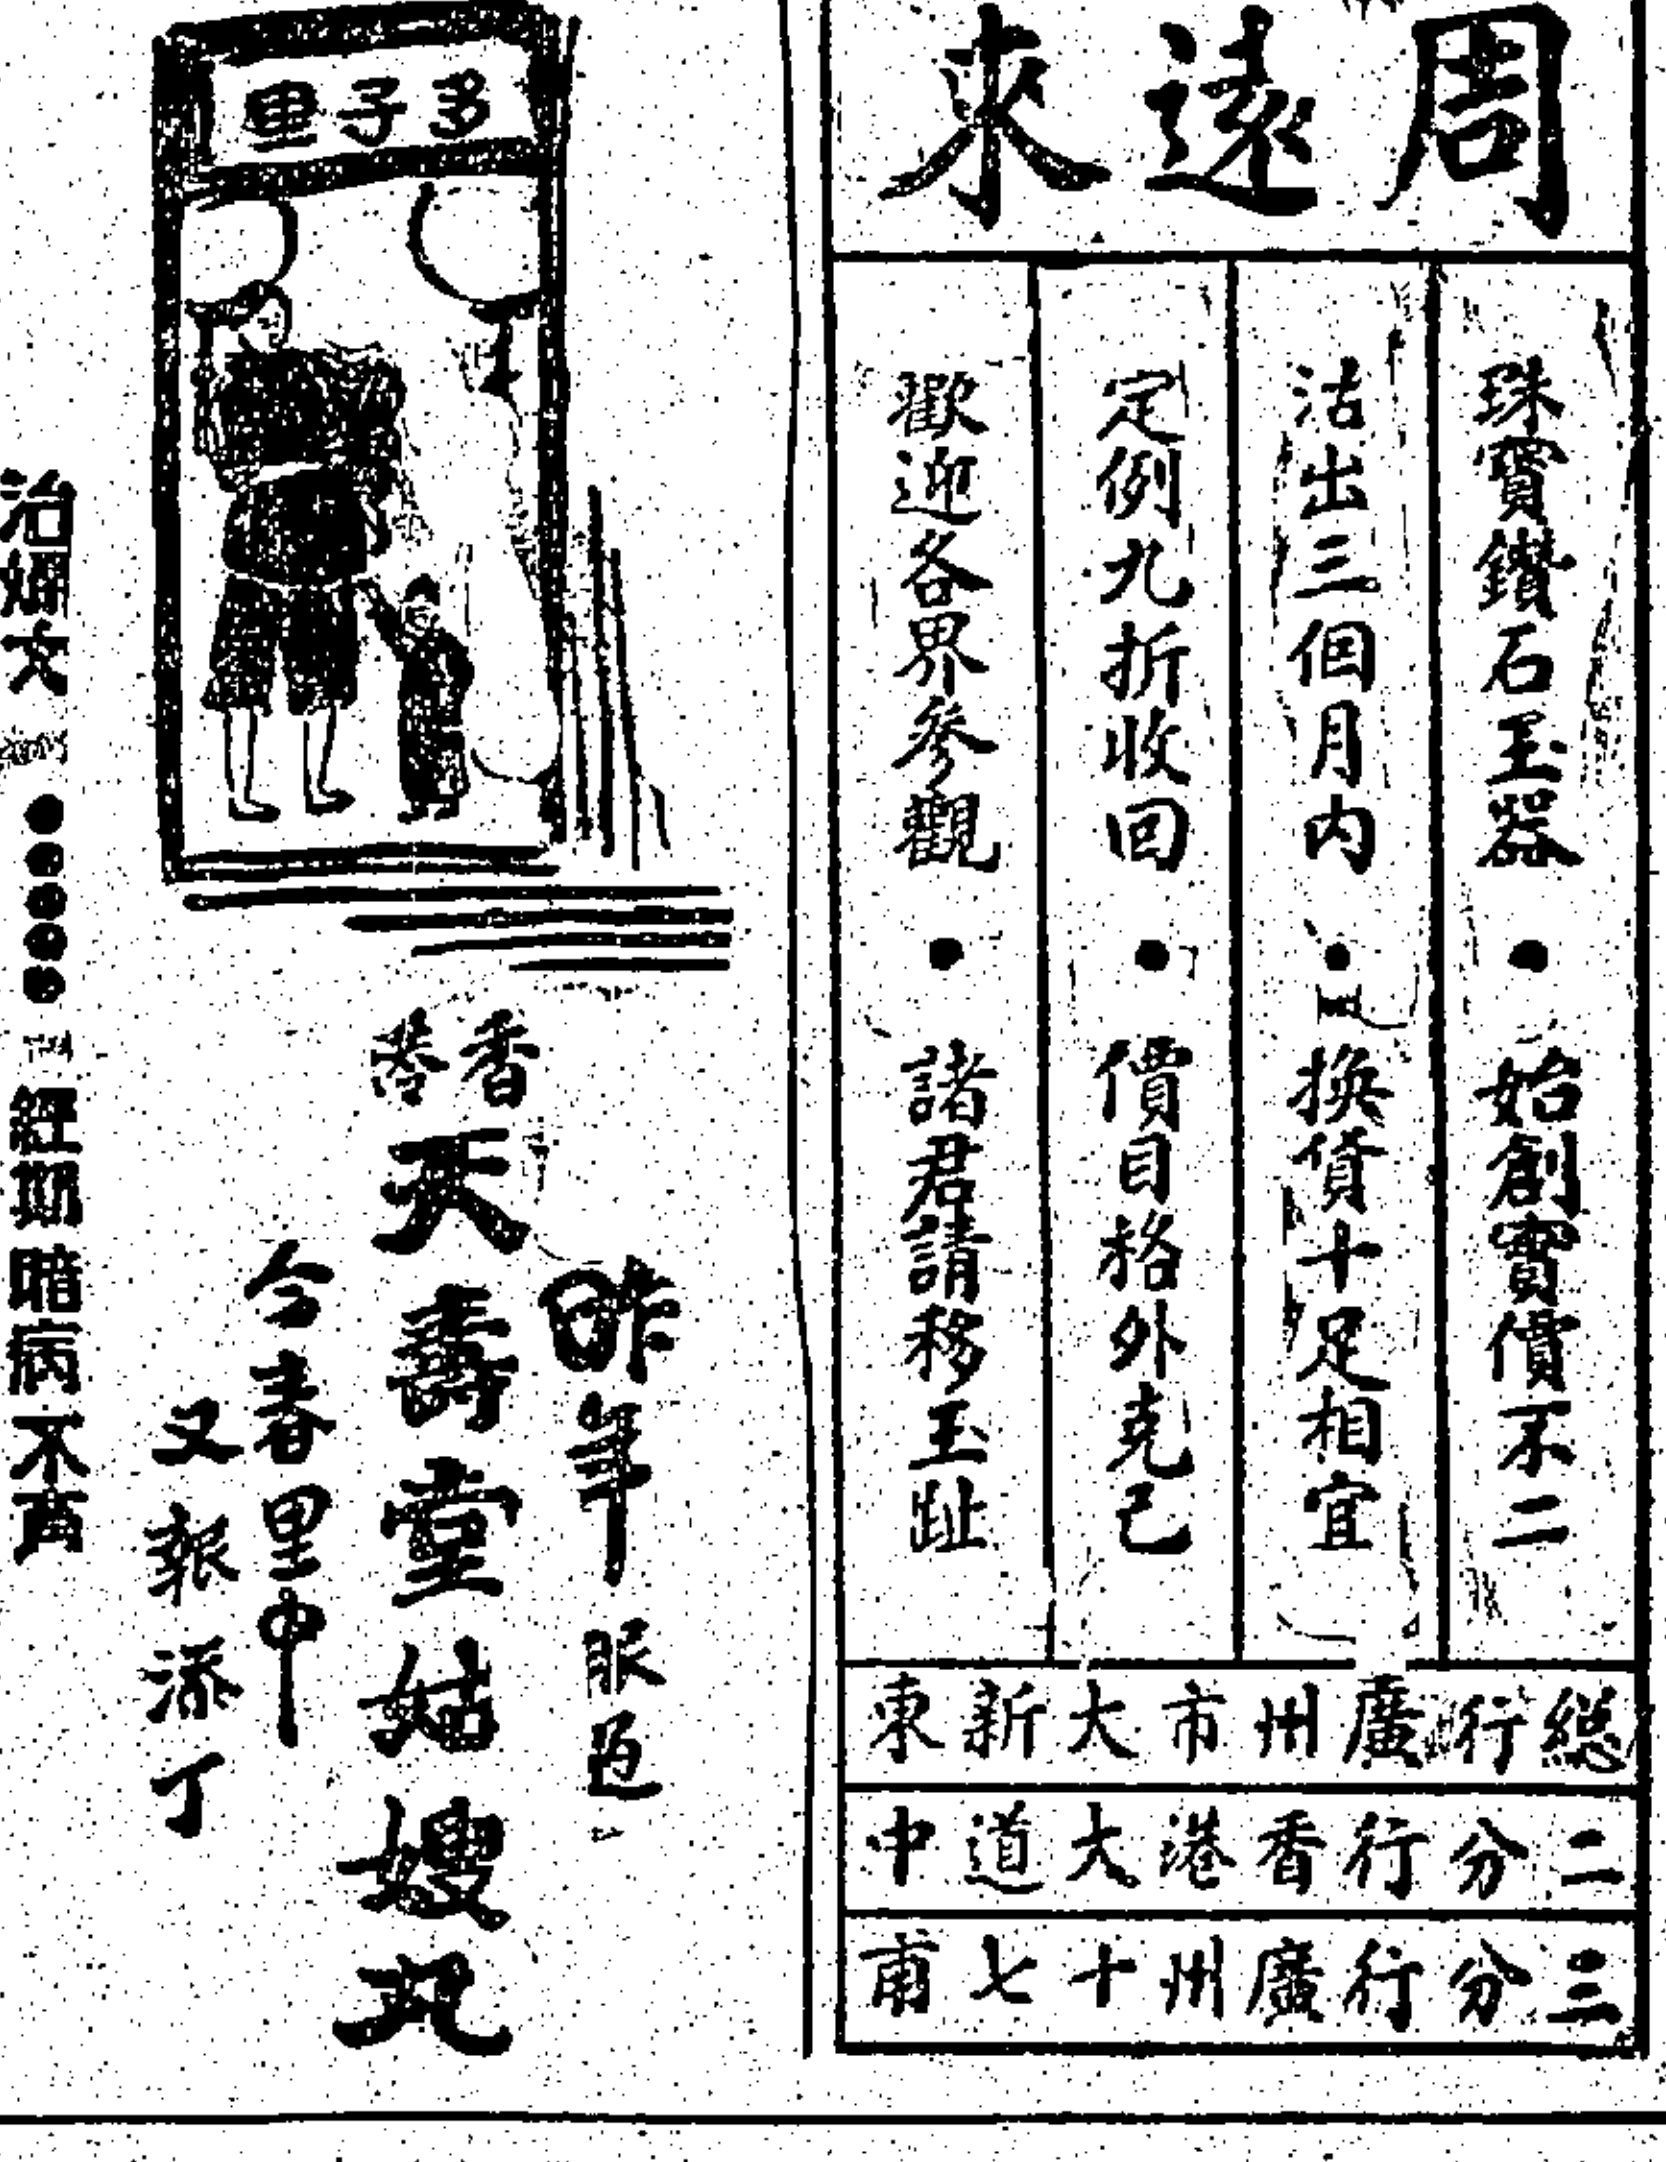 周遠來
珠寶鑽石玉器●始創實價不二
沽出三個月內●換貨十足相宜
定例九折收回●價目格外克己
歡迎各界參觀●諸君請移玉趾
總行廣州市大新東
二分行香港大道中
三分行廣州十七甫
多子里
昨年服過
香港
天壽堂姑嫂丸
今春里中
又報添丁
經期暗病不育